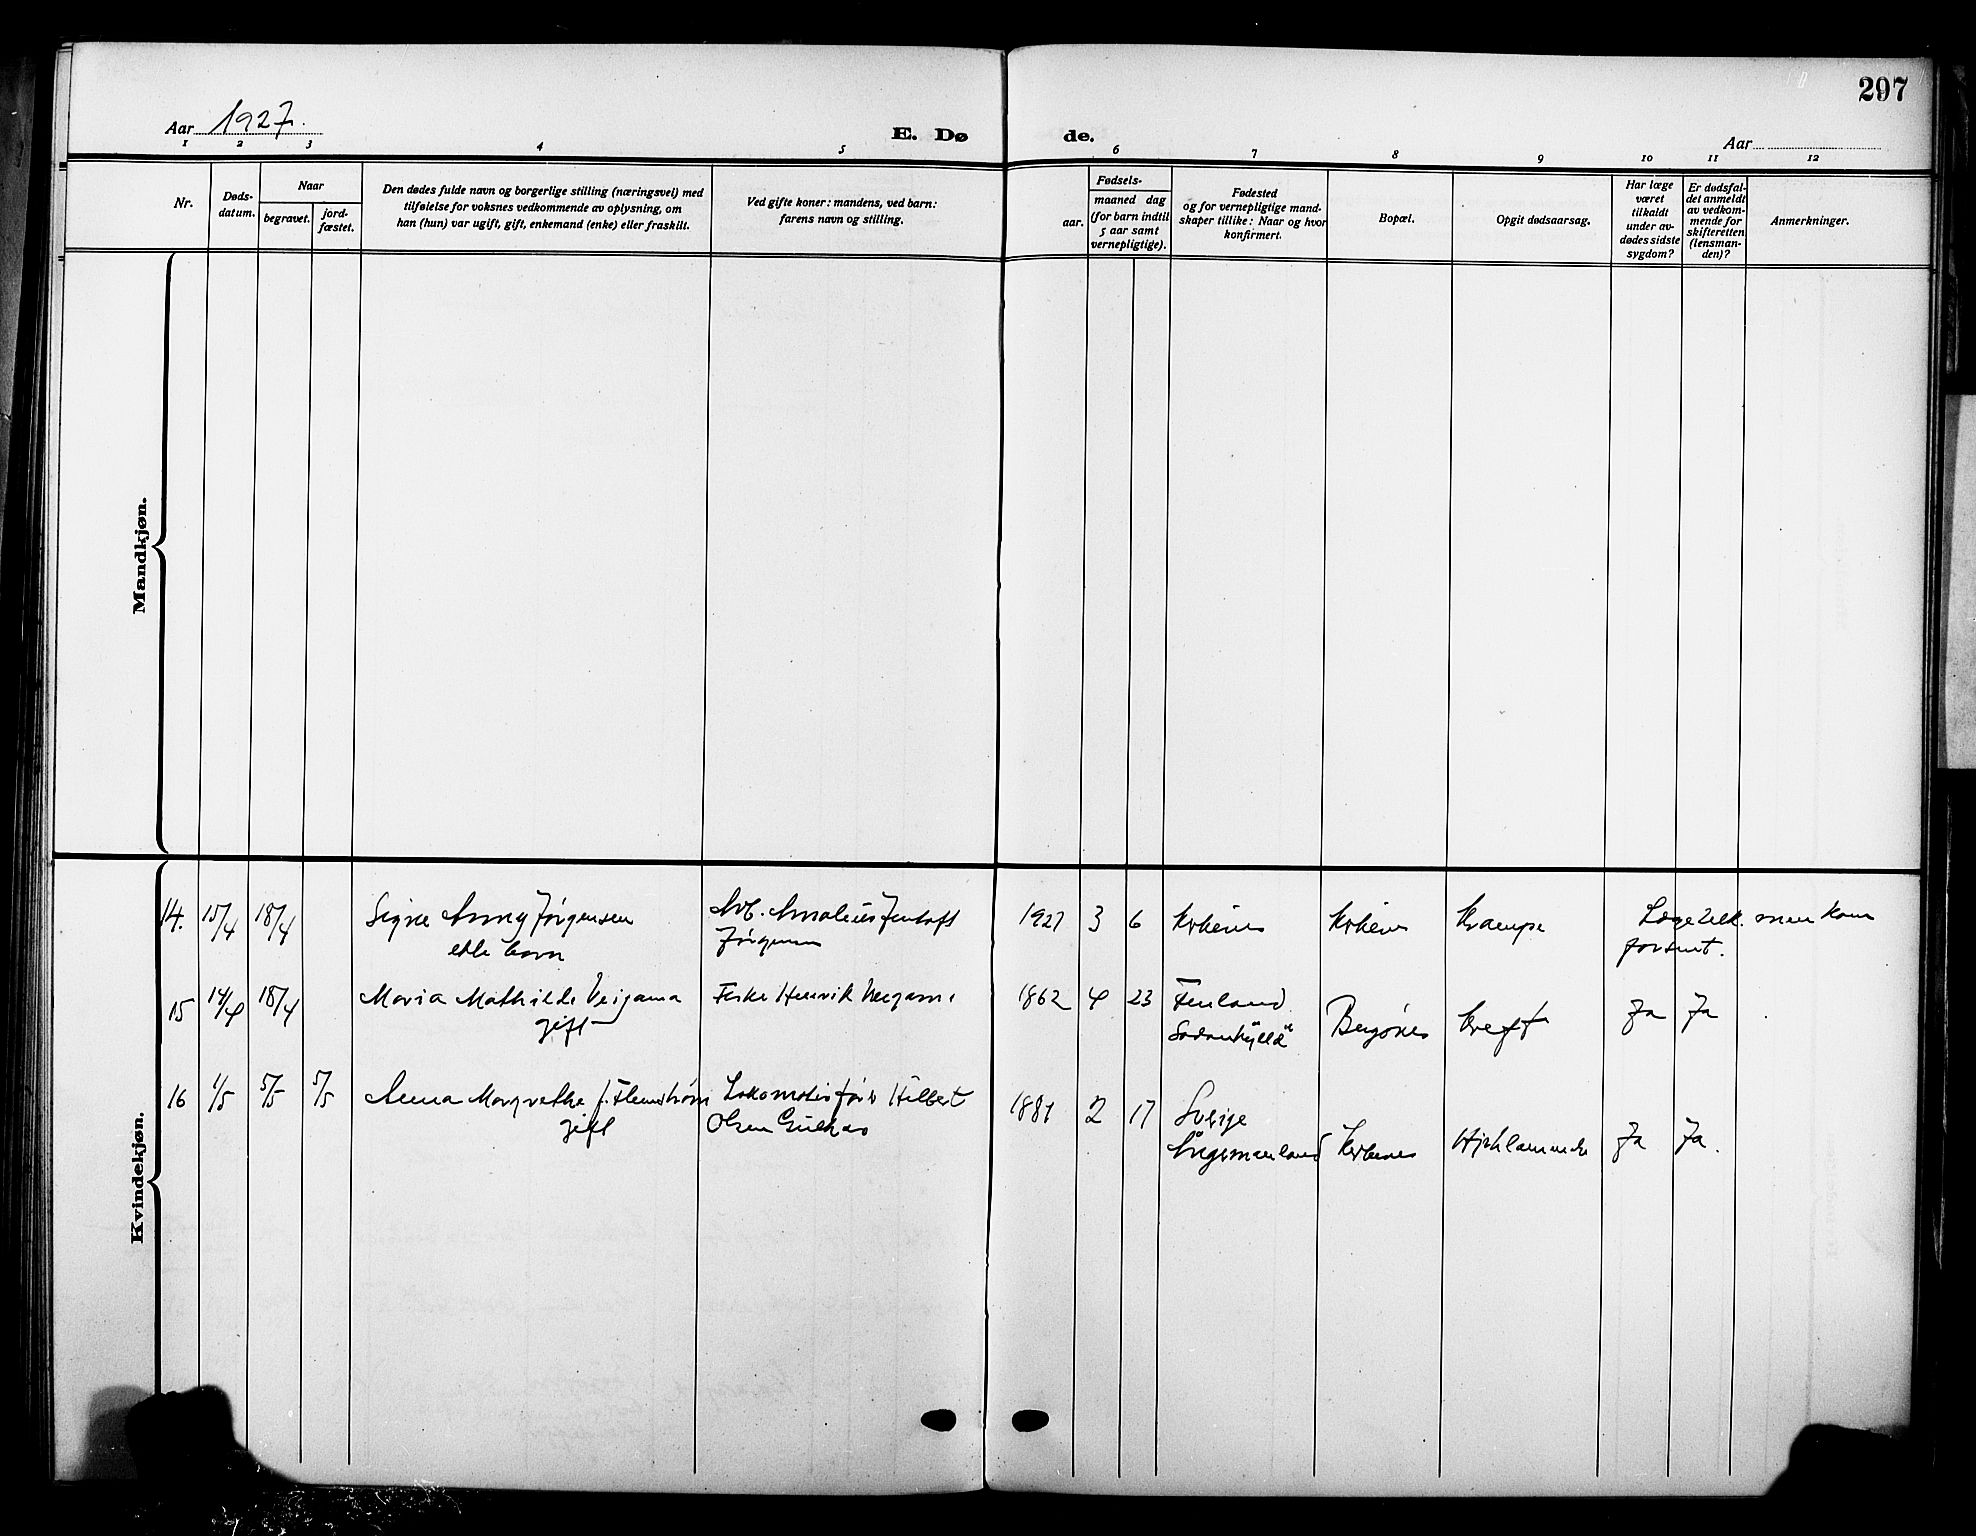 297
Aar 1927.
E. Dø de.
Aar
1 2 3 4 5 6 7 8 9 10 11 12
Nr.
Døds-
datum.
Naar
begravet.
jord-
fæstet.
Den dødes fulde navn og borgerlige stilling (næringsvei) med
tilføielse for voksnes vedkommende av oplysning, om
han (hun) var ugift, gift, enkemand (enke) eller fraskilt.
Ved gifte koner: mandens, ved barn:
farens navn og stilling.
Fødsels-
aar.
maaned dag
(for barn indtil
5 aar samt
vernepligtige).
Fødested
og for vernepligtige mand-
skaper tillike: Naar og hvor
konfirmert.
Bopæl.
Opgit dødsaarsag.
Har læge
været
tilkaldt
under av-
dødes sidste
sygdom?
Er dødsfal-
det anmeldt
av vedkom-
mende for
skifteretten
(lensman-
den)?
Anmerkninger.
Mandkjøn.
Kvindekjøn.
14. 15/4 18/4 Signe Anny Jørgensen Arb. Amalius 1927 3 6 Kirkenes Kirkenes Krampe Læge tilk. men kom
ekte barn Jørgensen forsent.
15 14/4 18/4 Maria Mathilde Veigama Fisker Henrik 1862 4 23 Finland Kreft Ja Ja
gift Sodankyllä Bugønes
16 1/5 5/5 5/5 Anna Margrethe f. Lokomotivfører Hilbert 1881 2 17 Sverige
gift Olsen Ångermanland Kirkenes Hjertelammelse Ja Ja.